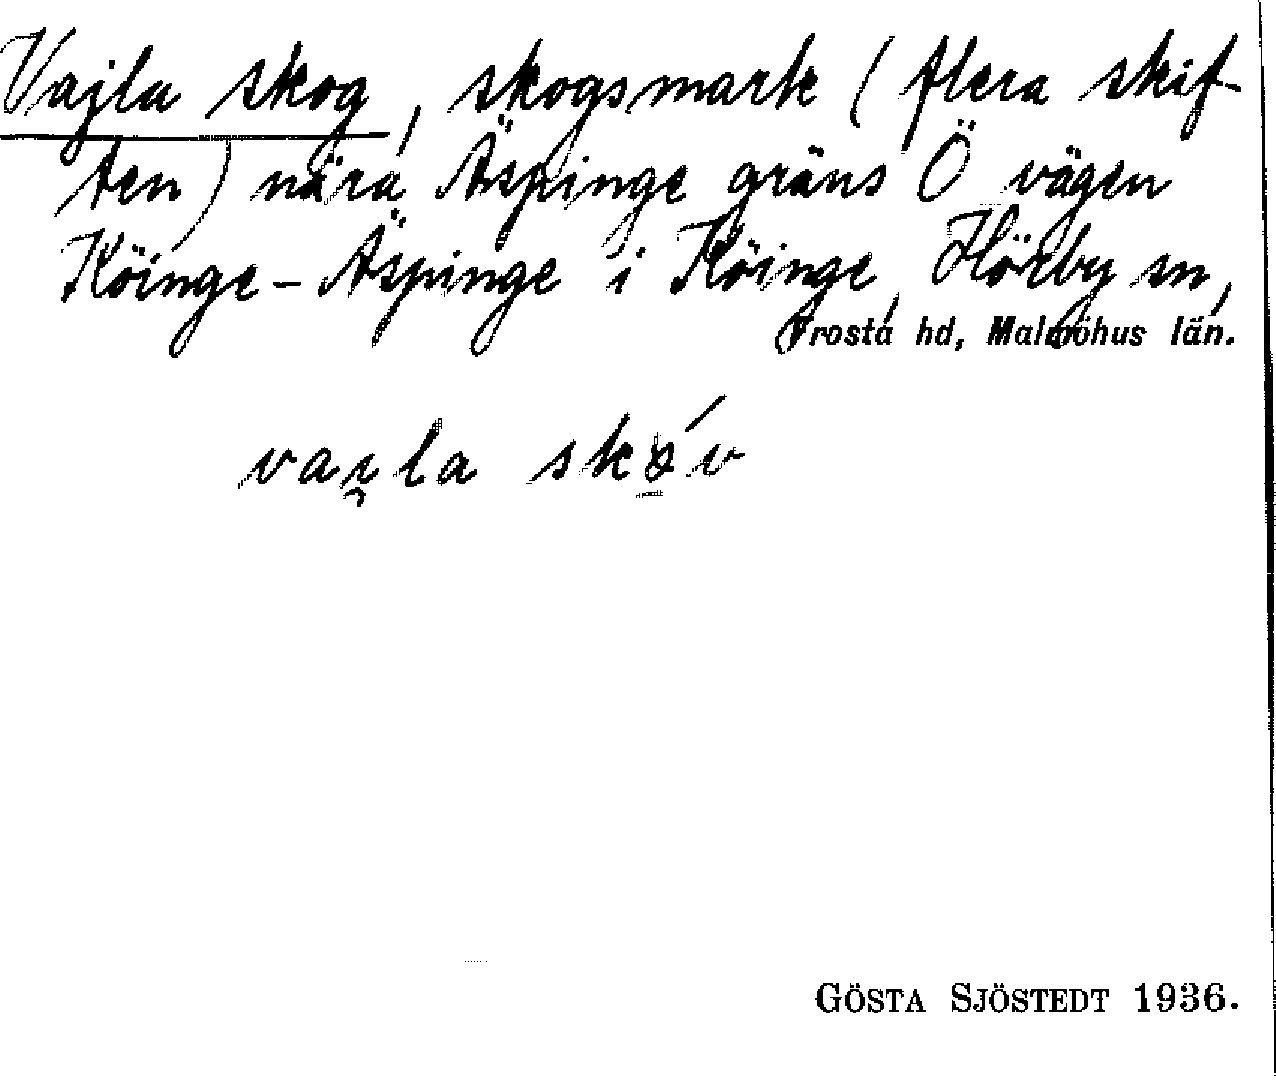 Vajla skog, skogsmark (flera skif-
ten) nära Äspinge gräns Ö vägen
Köinge-Äspinge i Köinge, Hörby sn,
Frosta hd, Malmöhus län.
vai̯la skǫ́v
GÖSTA SJÖSTEDT 1936.